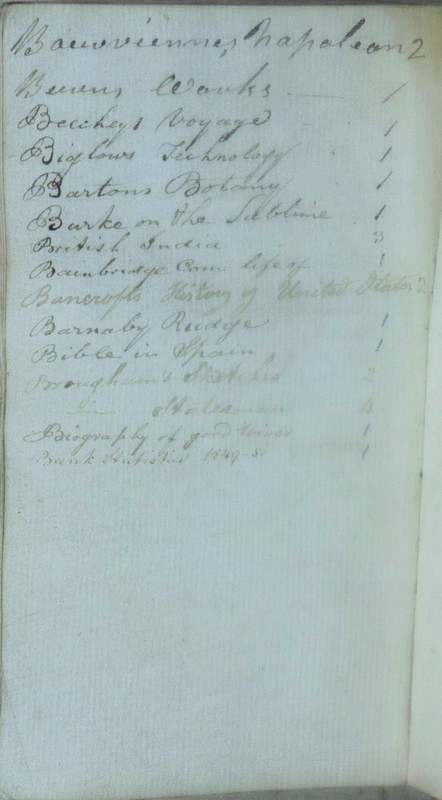 Bourviennes, Napoleon 2
Works 1
Beecheys Voyage 1
Biglows Technology 1
Bartons Botany 1
Burke on the Sublime 1
British India 3
Bainbridge Com life of 1
Bancrofts History of United States 2
Barnaby Rudge 1
Bible in Spain 1
Brougham's Sketches 2
Statesmen
Biography of good wives 1
Bank Statistics 1849-50 1